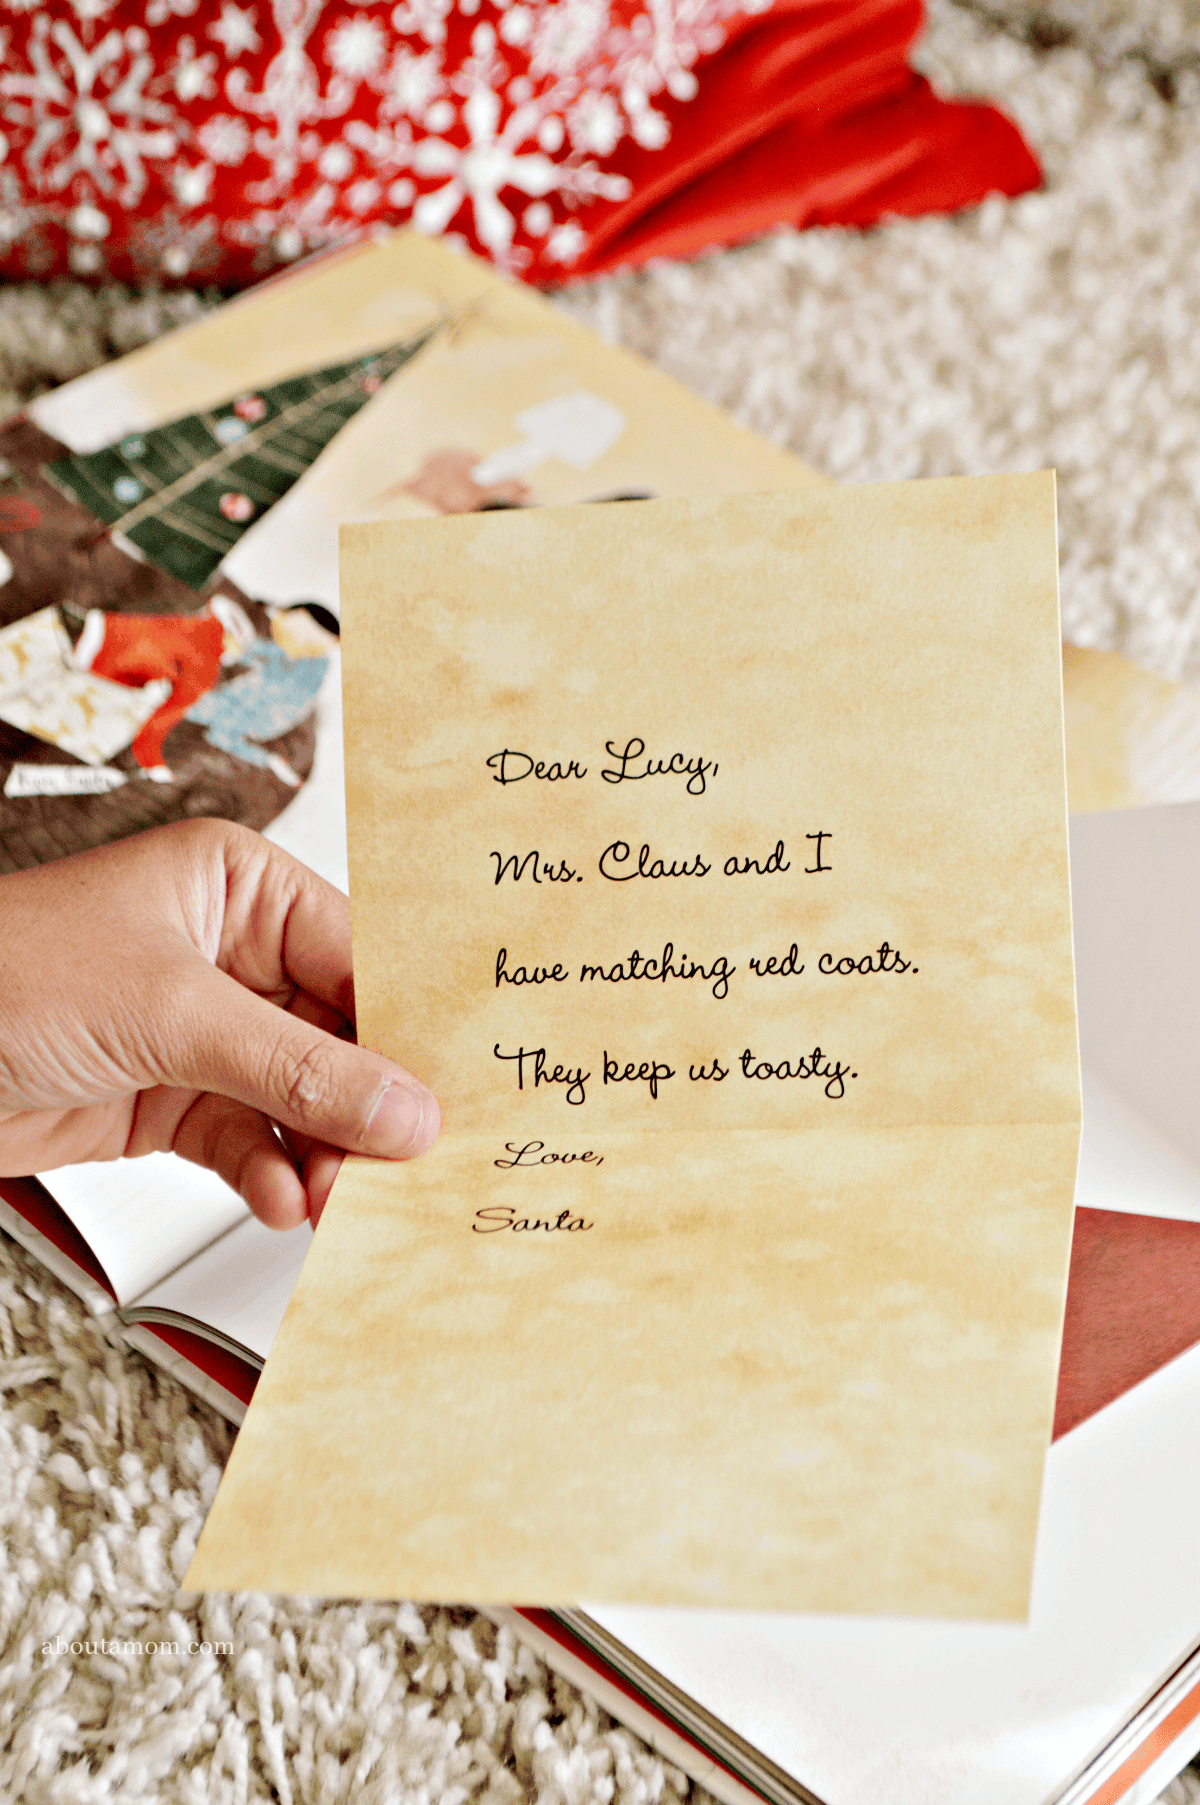 Dear Lucy,
Mrs. Claus and I
have matching red coats.
They keep us toasty.
Love,
Santa
aboutamom.com